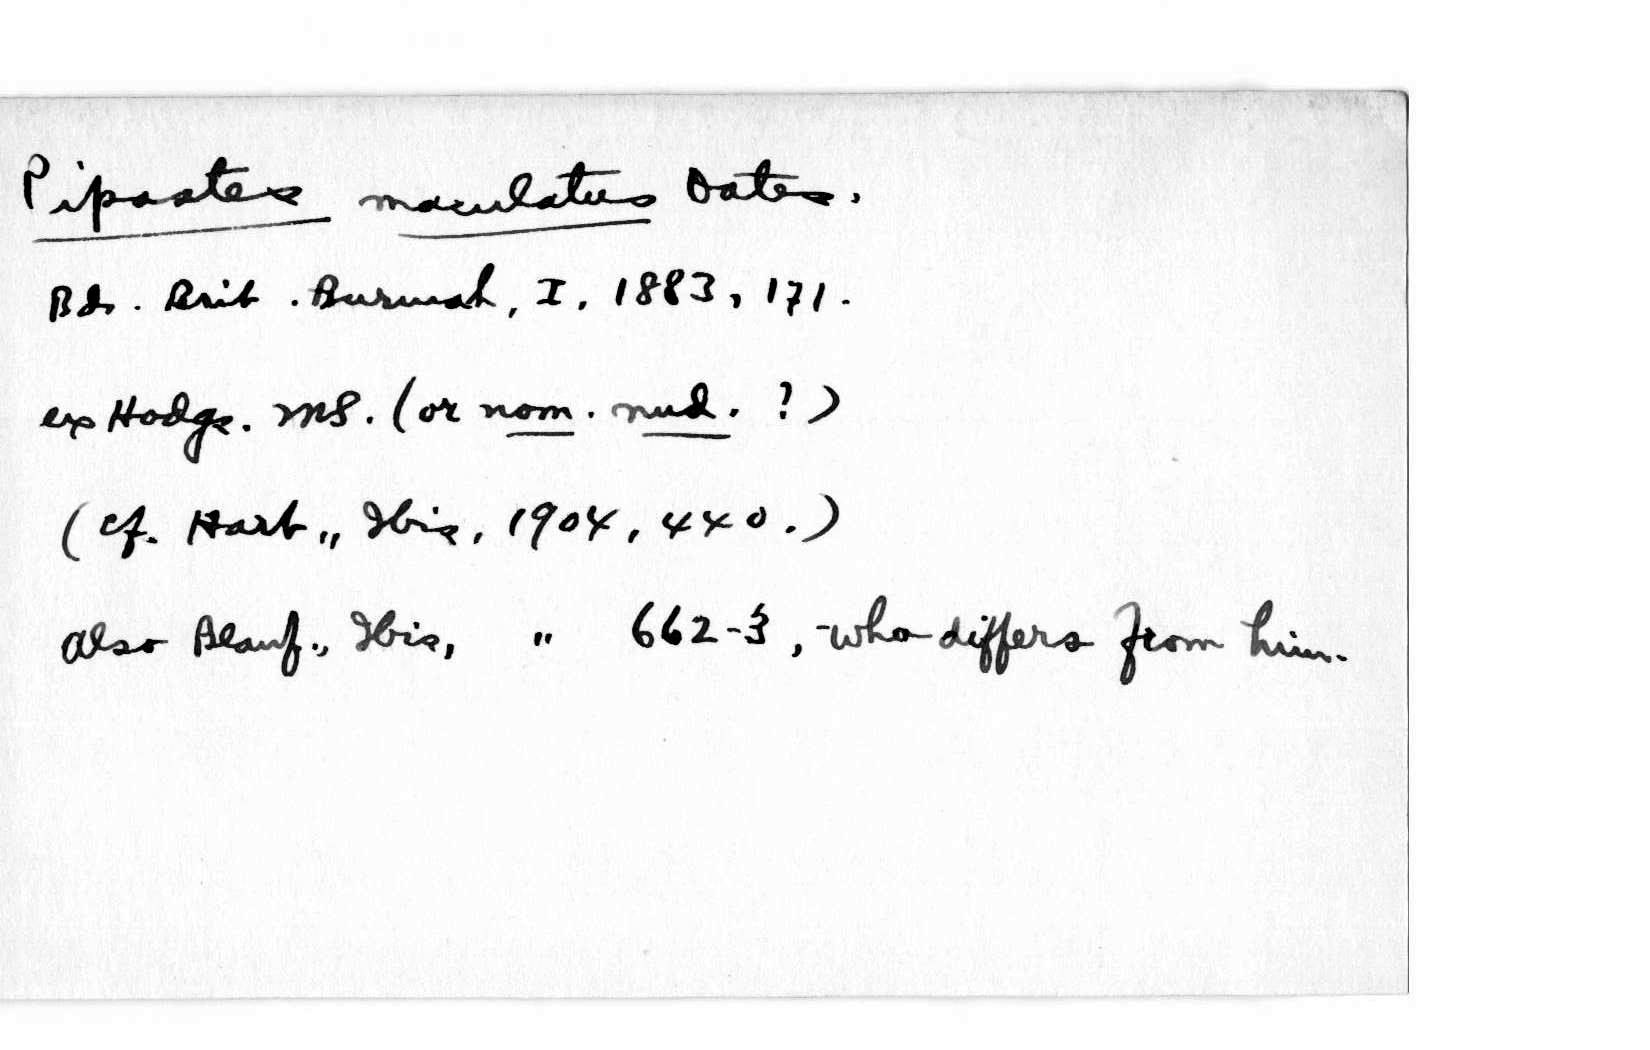 Pipastes maculatus Oates.
Bds. Brit. Burmah, I, 1883, 171.
ex Hodgs. MS. (or nom. nud. ?)
(cf. Hart., Ibis, 1904, 440.)
Also Blanf., Ibis, " 662-3, who differs from him.